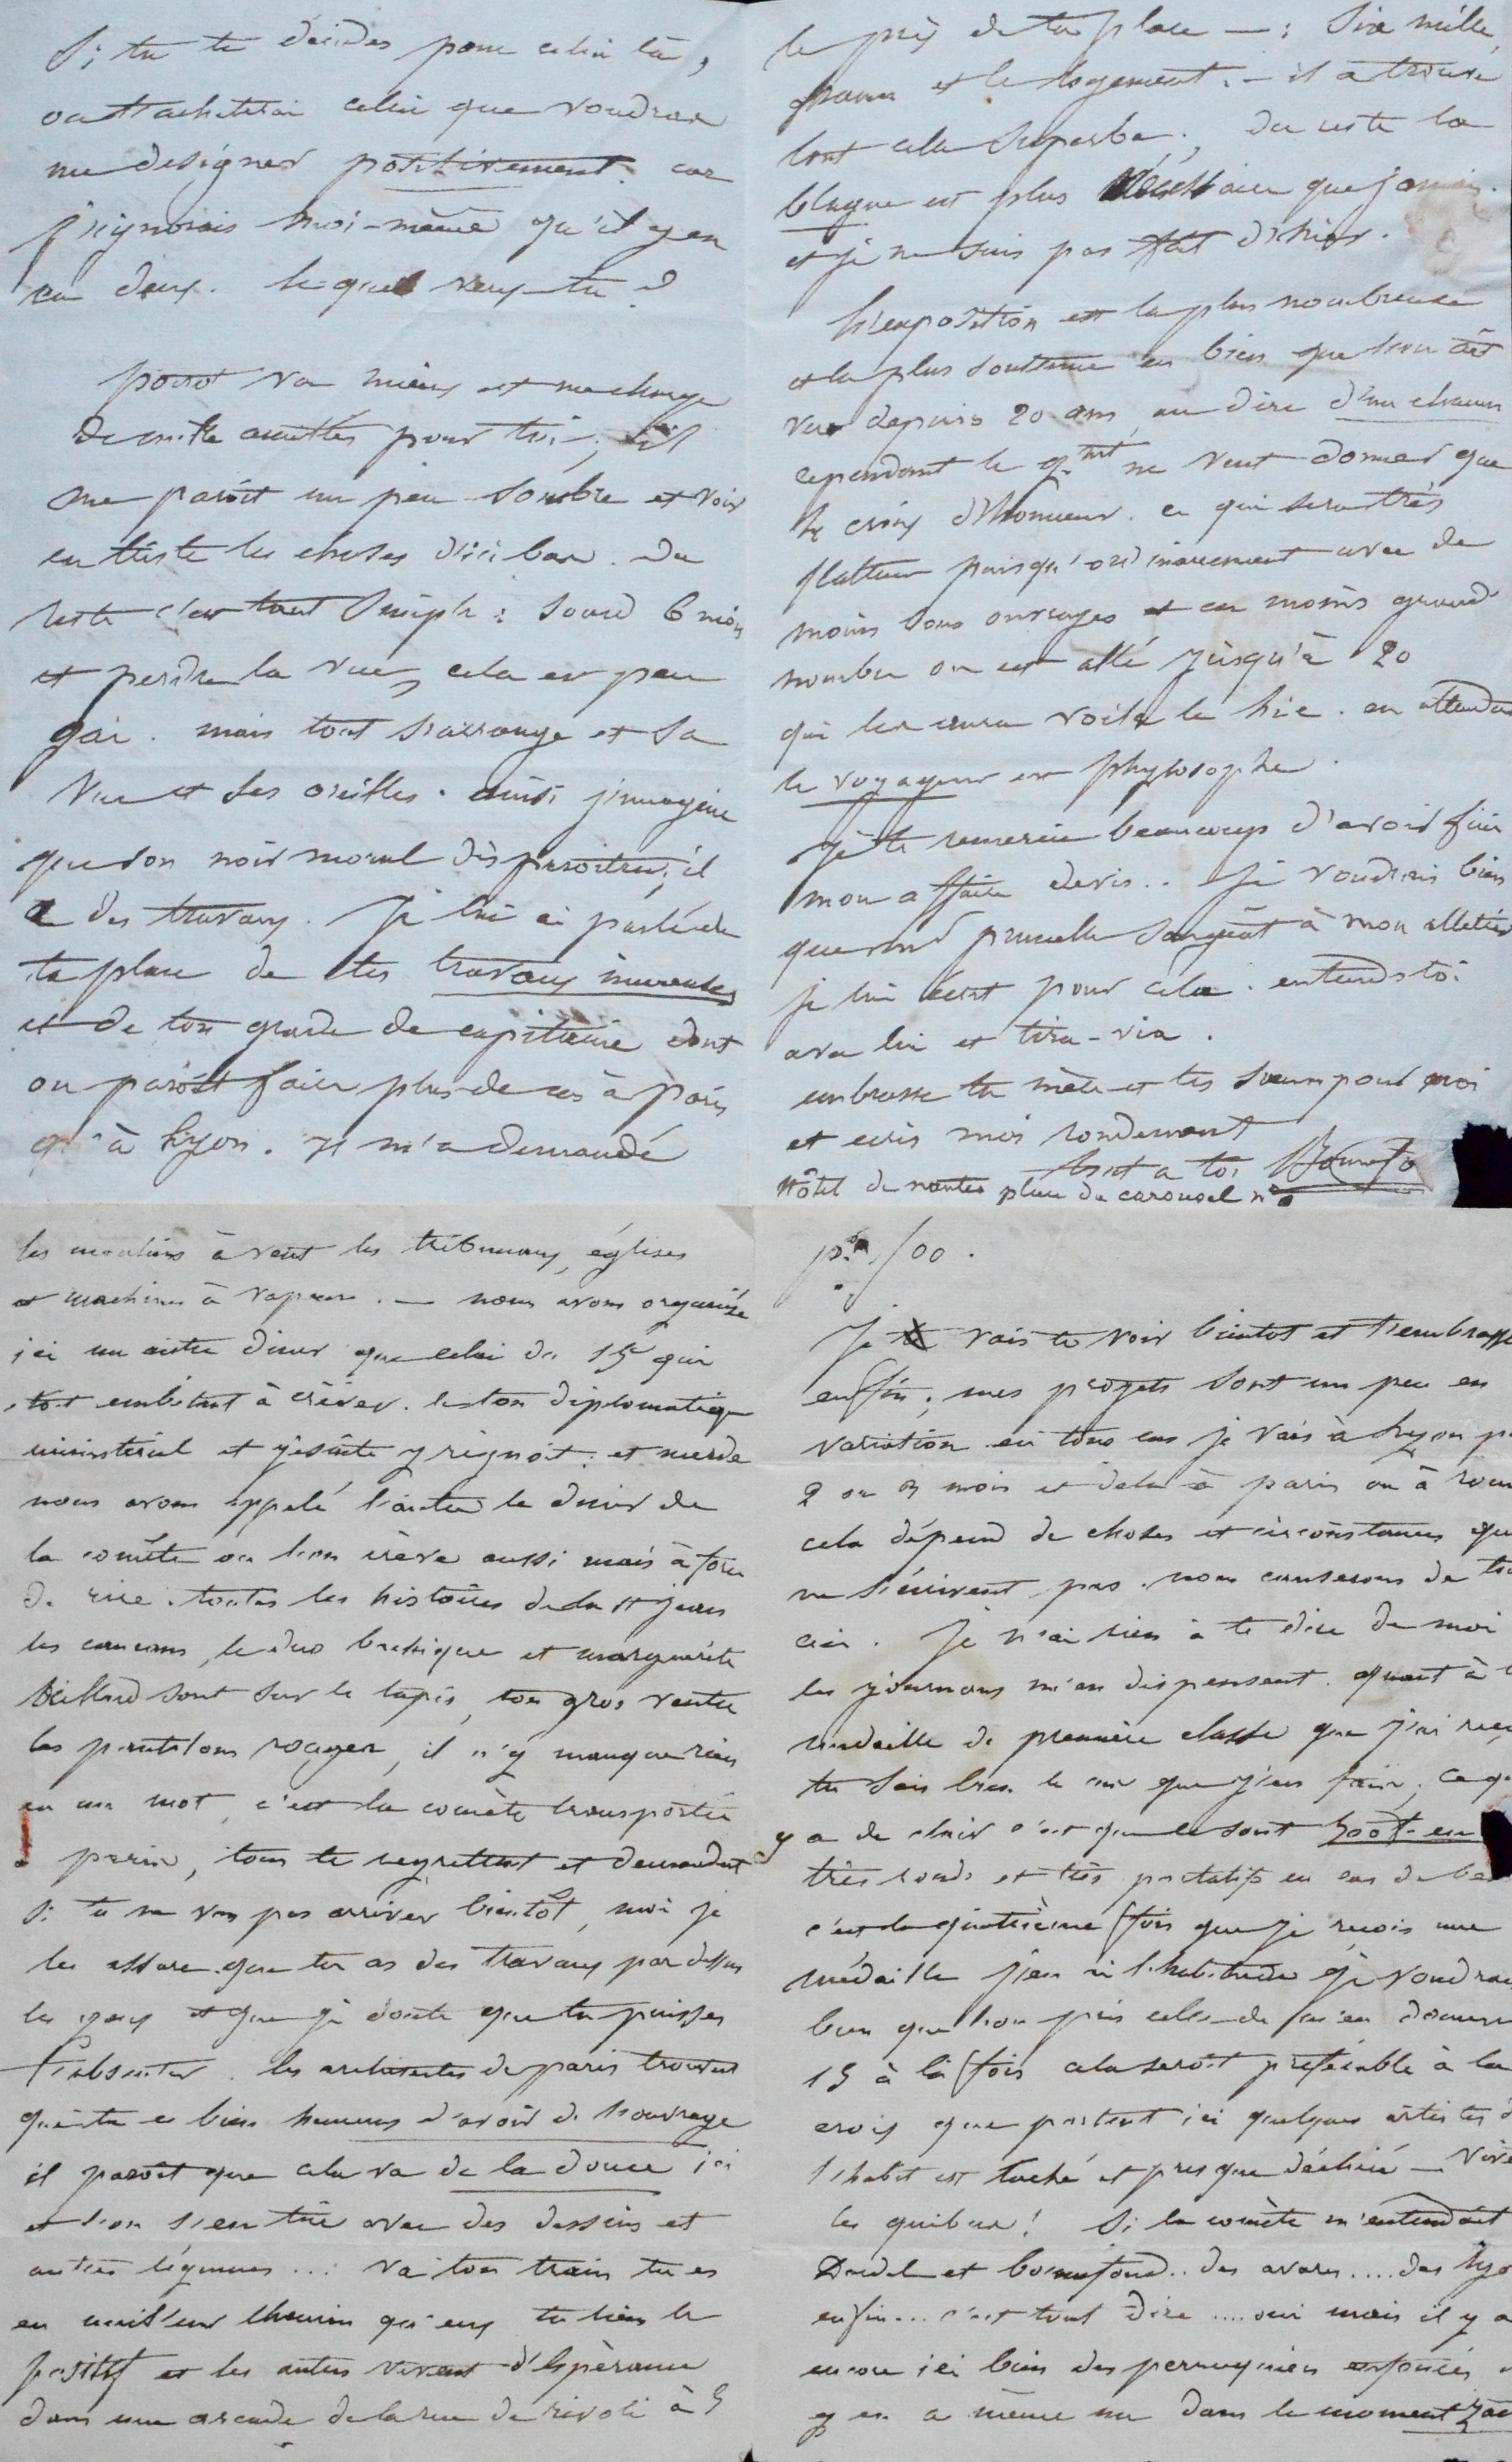 Si tu te décides pour celui là,
on t'achetera celui que voudras
me designer positivement. car
j'ignorais moi-même qu'il y en
eu deux. lequel veux-tu ?
poirot va mieux et me charge
de mille amitiés pour toi ; il
me paroit un peu sombre et voir
en triste les choses d'ici bas. du
reste c'est tout simple : sourd 6 mois
et perdre la vue, cela est peu
gai. mais tout s'arrange et sa
vue et ses oreilles. ainsi j'imagine
que son noir moral disparoitra ; il
a des travaux. Je lui ai parlé de
ta place de tes travaux
et de ton grade de capitaine dont
on paroit faire plus de cas à paris
qu'à Lyon. Il m'a demandé
le prix de ta place — : Six mille
francs et le logement. — il a trouvé
tout cela superbe. du reste la
blague est plus nécessaire que jamais.
et je ne suis pas fait d'hier.
L'exposition est la plus nombreuse
et la plus soutenue en bien que l'on ait
vue depuis 20 ans, au dire d'un chacun
cependant le g.nt ne veut donner que
croix d'honneur. ce qui sera très
flatteur puisqu'ordinairement avec de
moins bons ouvrages et en moins grand
nombre on est allé jusqu'à 20
qui les aura voila le hic. en attendant
le voyageur est phylosophe.
Je te remercie beaucoup d'avoir fini
mon affaire devis.. Je voudrais bien
que prunelle songeât à mon attelier
je lui écrit pour cela. entends toi
avec lui et tira-via.
embrasse ta mère et tes soeurs pour moi
et ecris moi rondement
tout a toi Bonnefo
Hôtel de nantes place du carousel n°
les moulins à vent les tribunaux, églises
et machines à vapeur. — nous avons organisé
ici un autre diner que celui du 15 qui
étoit embêtant à crêver. le ton diplomatique
ministeriel et jesuite y regnoit : et merde
nous avons appelé l'autre le diner de
la comète ou l'on crève aussi mais à force
de rire. toutes les histoires de la St jean
les cancans, le duo bachique et marguerite
sont sur le tapis, ton gros ventre
les pantalons rouges, il n'y manque rien
en un mot, c'est la comète transportée
à paris, tous te regrettent et demandent
si tu ne vas pas arriver bientôt, moi je
les assure que tu as des travaux par dessus
les yeux et que je doute que tu puisses
t'absenter. les architectes de paris trouvent
que tu es bien heureux d'avoir de l'ouvrage
il paroit que cela va de la douce ici
et l'on s'en tire avec des dessins et
autres légumes... va ton train tu es
en meilleur chemin qu'eux tu tiens le
positif et les autres vivent d'espèrance
dans une arcade de la rue de rivoli à 5
p.r 100.
Je vais te voir bientot et t'embrasser
enffin ; mes projets sont un peu en
variation en tous cas je vais à Lyon p
2 ou 3 mois et delà à paris ou à rom
cela dépend de choses et circonstances qu
ne s'écrivent pas. nous causerons de tou
ceci. Je n'ai rien à te dire de moi
les journaux m'en dispensent. quant à l
médaille de première classe que j'ai reçu
tu sais bien le cas que j'en fais ; ce qu'
y a de clair c'est que ce sont 500f. en
très ronds et très portatifs en cas de be
c'est la quatrième fois que je reçois une
médaille j'en ai l'habitude et je voudrai
bien que l'on prit celle de m'en donner
15 à la fois cela seroit préférable à la
croix que portent ici quelques artistes d
l'habit est taché et presque déchiré — vive
les quibus ! Si la comète m'entendait
Dardel et bonnefond.. des avares.... des lyo
enfin... c'est tout dire .... oui mais il y a
encore ici bien des perruquiers enfoncés
y en a même un dans le moment